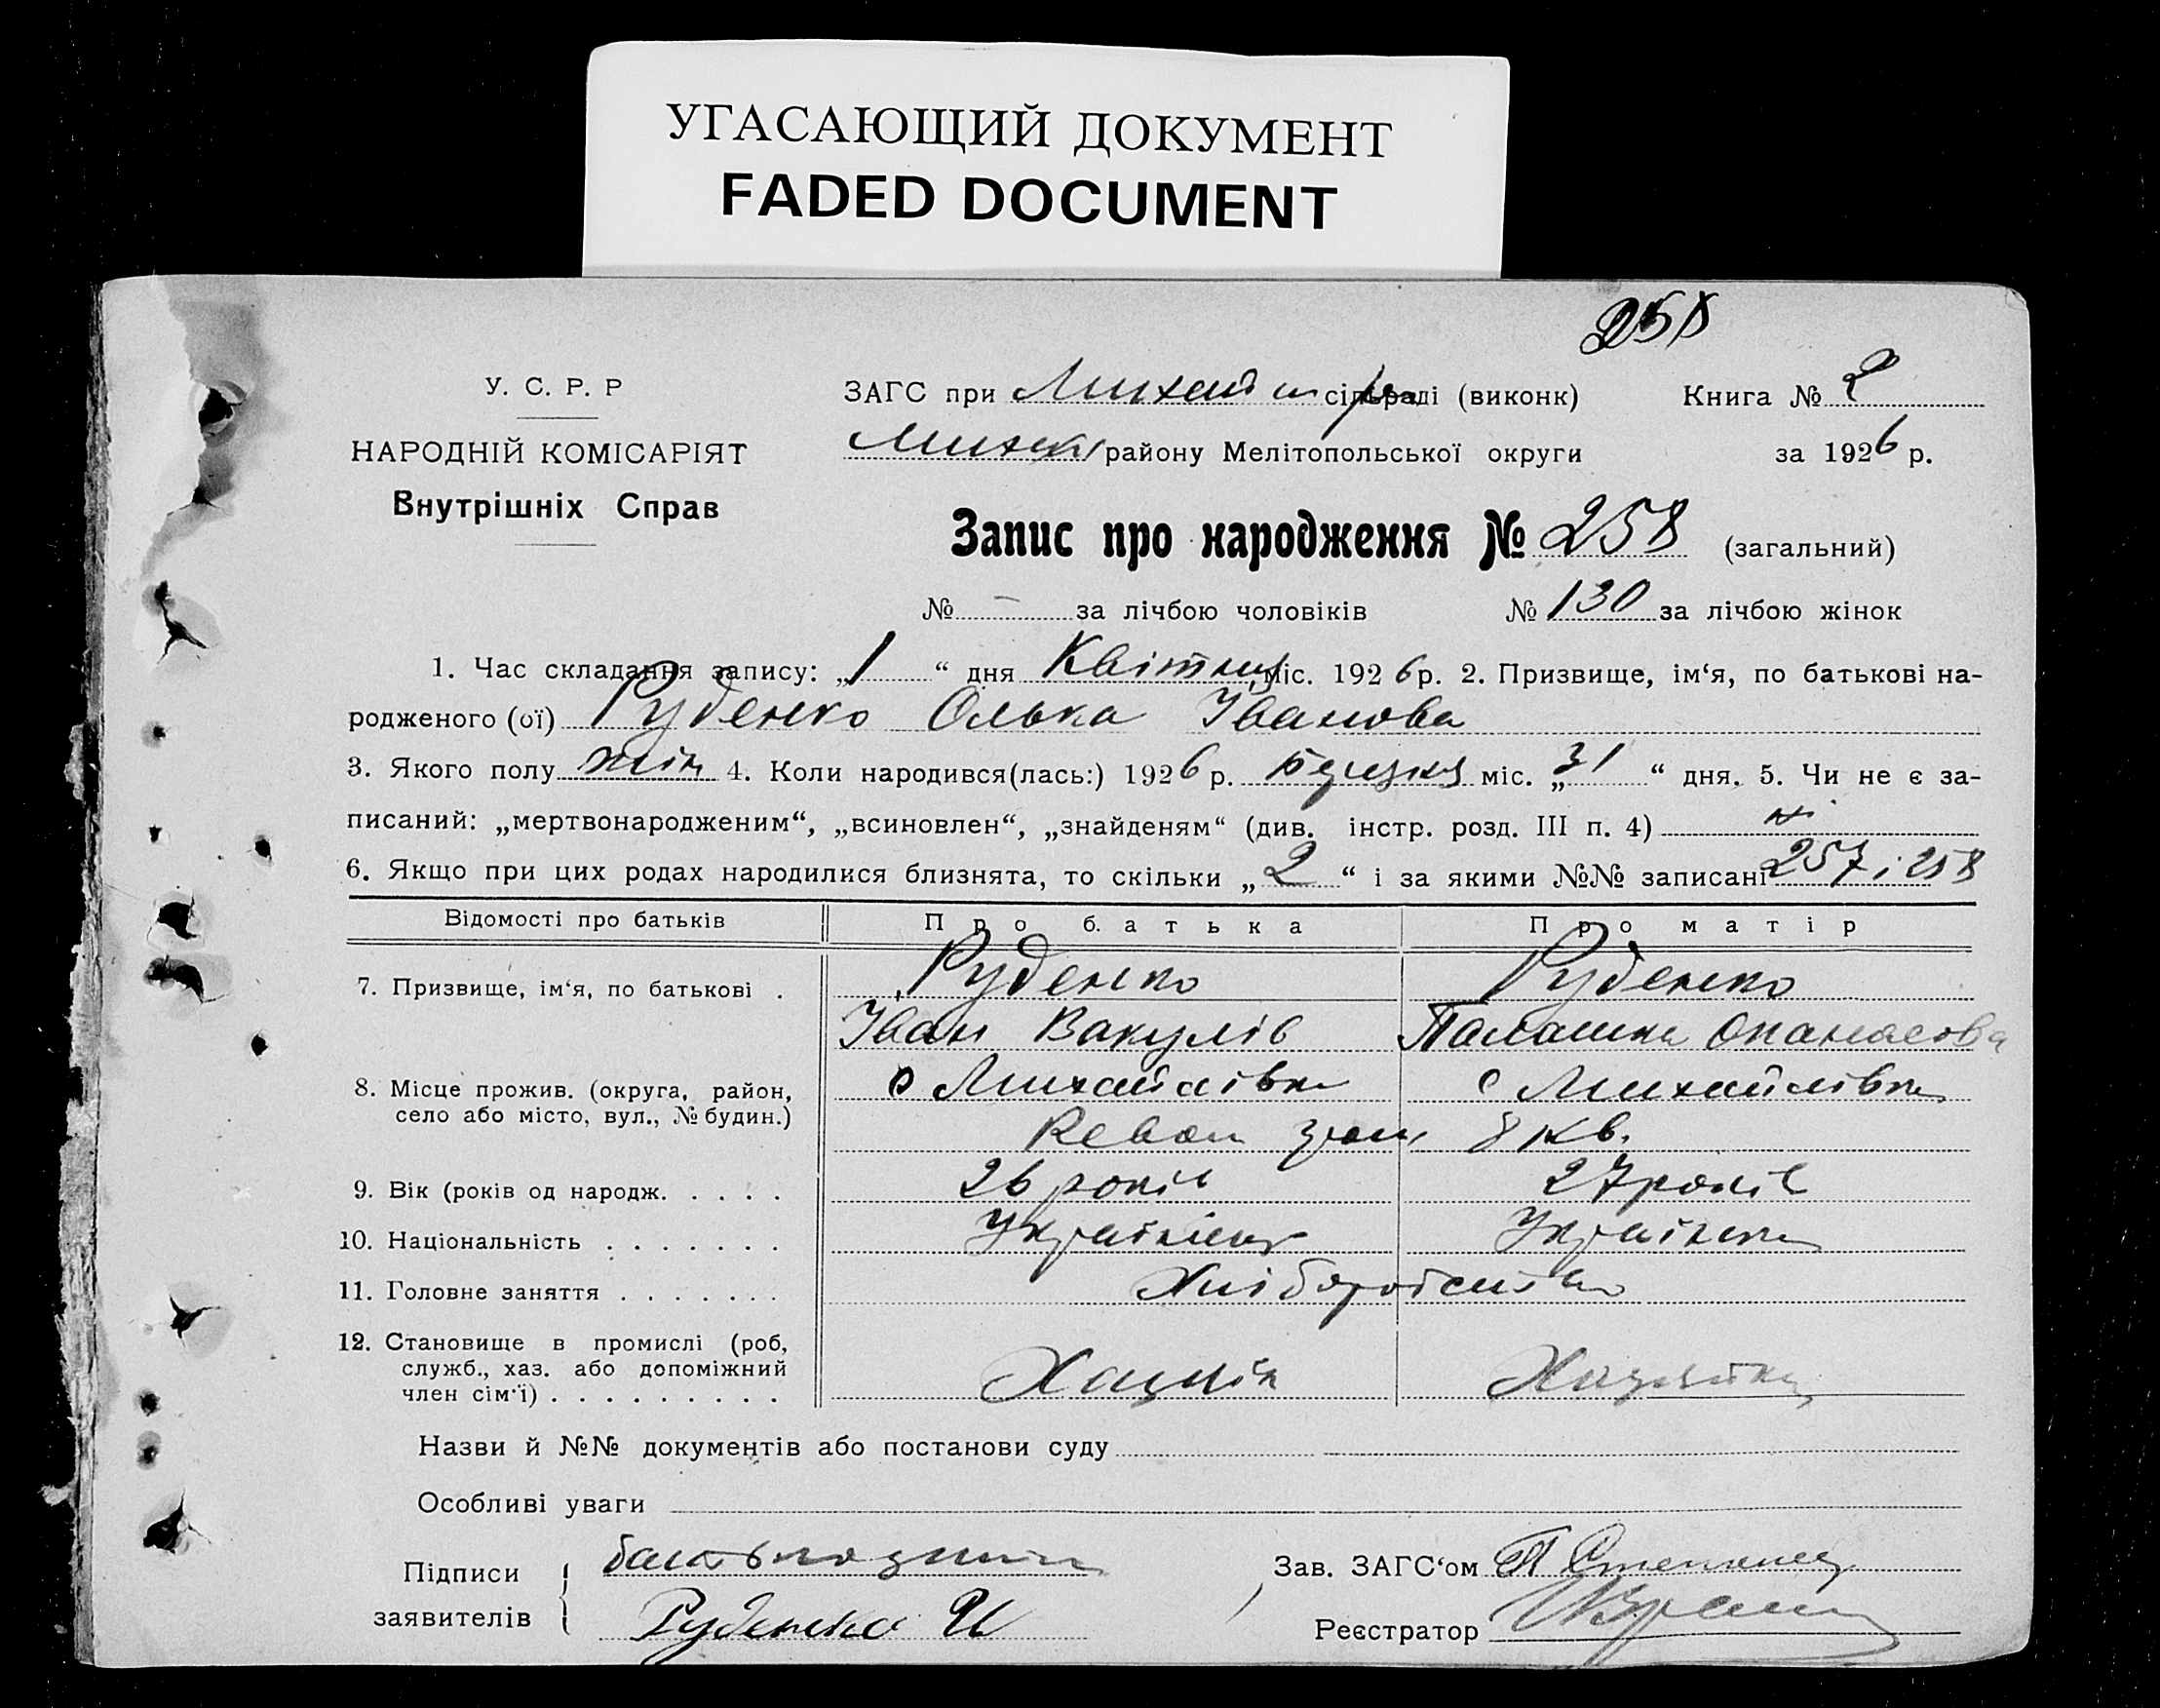 УГАСАЮЩИЙ ДОКУМЕНТ
FADED DOCUMENT
258
У. С. Р. Р
НАРОДНІЙ КОМІСАРІЯТ
Внутрішніх Справ
ЗАГС при сільраді (виконк) Книга № 2
району Мелітопольської округи за 1926 р.
Запис про народження № 258 (загальний)
№ — за лічбою чоловіків № 130 за лічбою жінок
1. Час складання запису: „1“ дня Квітня міс. 1926 р. 2. Призвище, ім‘я, по батькові на-
родженого (ої) Руденко Олька Іванова
3. Якого полу жін 4. Коли народився(лась:) 1926 р. березня міс. „31“ дня. 5. Чи не є за-
писаний: „мертвонародженим“, „всиновлен“, „знайденям“ (див. інстр. розд. III п. 4) ні
6. Якщо при цих родах народилися близнята, то скільки „2“ і за якими №№ записані 257 і 258
Відомості про батьків Про батька Про матір
7. Призвище, ім‘я, по батькові . Руденко Руденко
Іван Вакулів Палашка Опанасова
8. Місце прожив. (округа, район, с Михайлівка с Михайлівка
село або місто, вул., № будин.) 8 кв.
9. Вік (років од народж. . . . . 26 років 27 років
10. Національність . . . . . . . Українець Українка
11. Головне заняття . . . . . . . Хліборобство
12. Становище в промислі (роб,
служб., хаз. або допоміжний
член сім‘ї) . . . . . . . . . Хазяїн Хазяйка
Назви й №№ документів або постанови суду
Особливі уваги
Підписи
заявителів
Руденко И
Зав. ЗАГС‘ом
Реєстратор